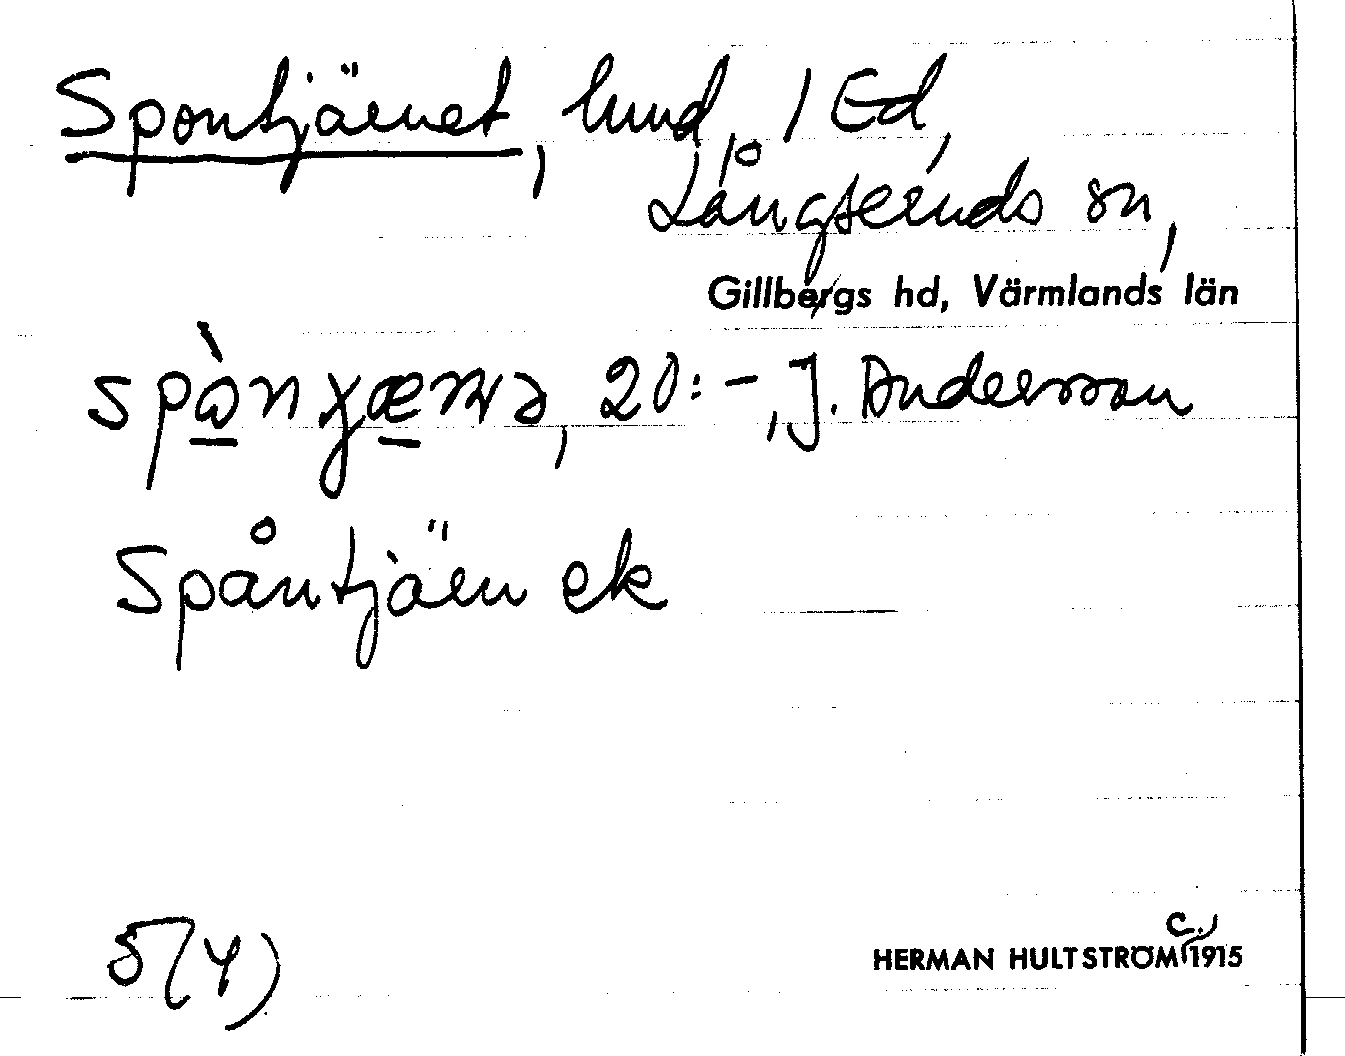 Spontjärnet, lund, 1 Ed,
Långseruds sn,
Gillbergs hd, Värmlands län
20:-, J. Andersson
Spåntjärn ek
5(4)
c.
HERMAN HULTSTRÖM 1915